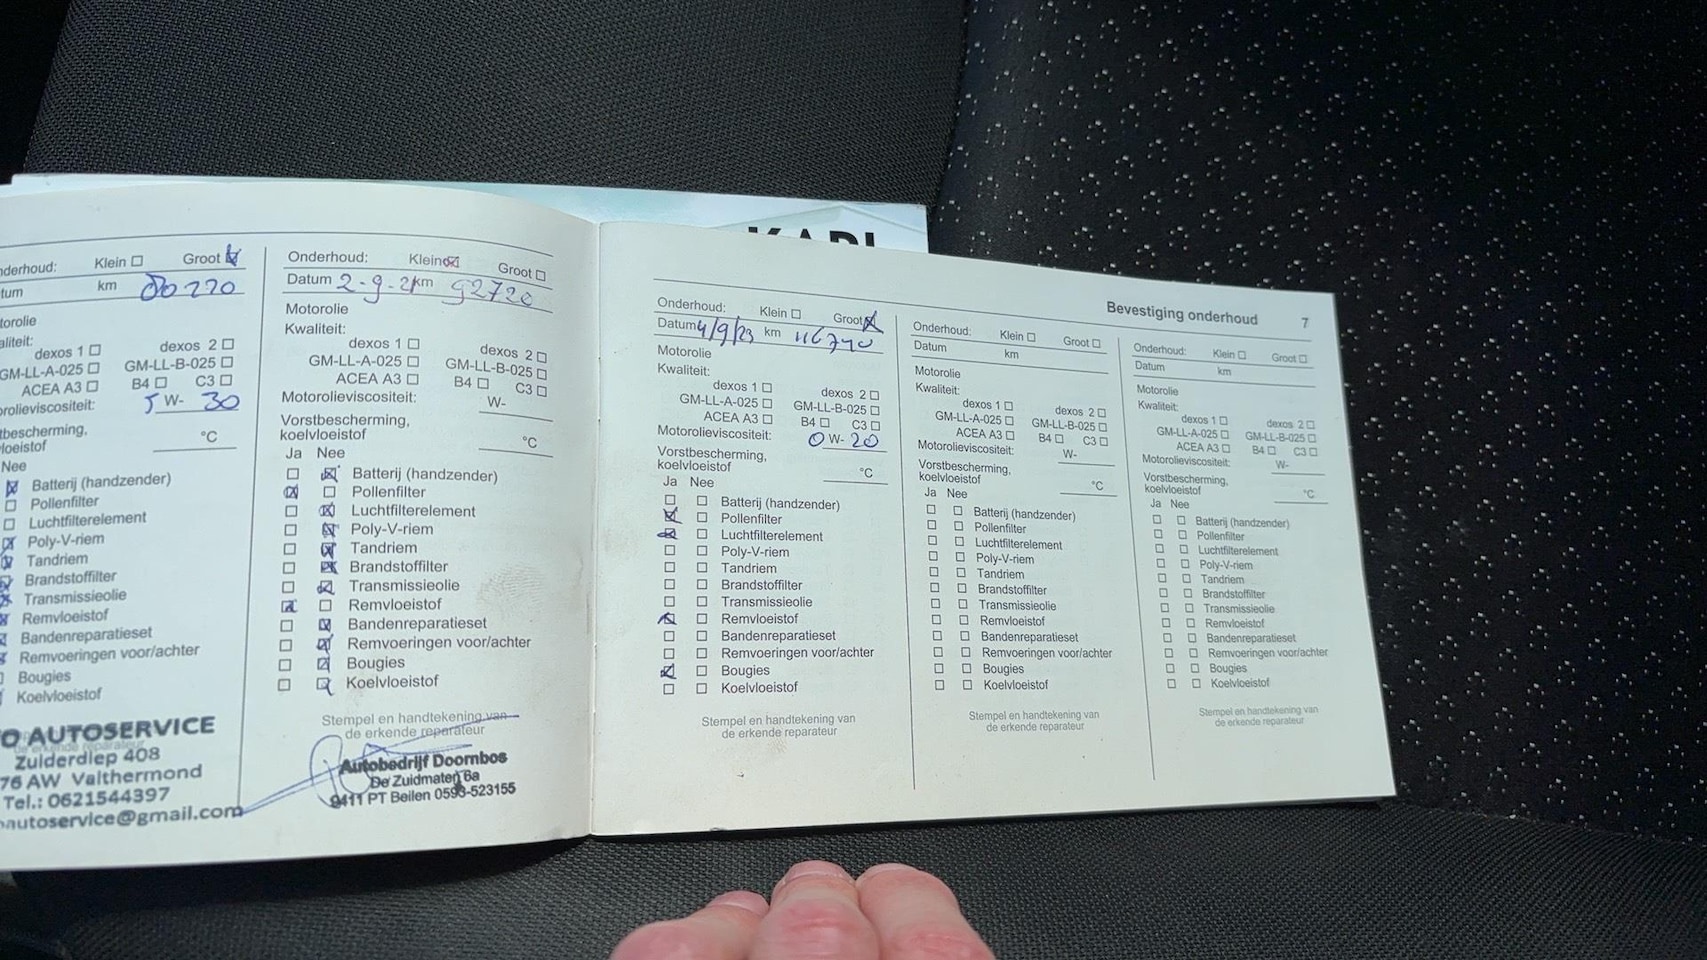 KARL
Onderhoud: Klein Groot
km 80220
dexos 1 dexos 2
GM-LL-A-025 GM-LL-B-025
ACEA A3 B4 C3
5 W- 30
°C
Nee
Batterij (handzender)
Pollenfilter
Luchtfilterelement
Poly-V-riem
Tandriem
Brandstoffilter
Transmissieolie
Remvloeistof
Bandenreparatieset
Remvoeringen voor/achter
Bougies
Koelvloeistof
AUTOSERVICE
Zuiderdiep 408
76 AW Valthermond
Tel.: 0621544397
autoservice@gmail.com
Onderhoud: Klein Groot
Datum 2-9-21 km 92720
Motorolie
Kwaliteit:
dexos 1 dexos 2
GM-LL-A-025 GM-LL-B-025
ACEA A3 B4 C3
Motorolieviscositeit: W-
Vorstbescherming,
koelvloeistof °C
Ja Nee
Batterij (handzender)
Pollenfilter
Luchtfilterelement
Poly-V-riem
Tandriem
Brandstoffilter
Transmissieolie
Remvloeistof
Bandenreparatieset
Remvoeringen voor/achter
Bougies
Koelvloeistof
Stempel en handtekening van
de erkende reparateur
Autobedrijf Doornbos
De Zuidmaten 6a
9411 PT Beilen 0593-523155
Bevestiging onderhoud 7
Onderhoud: Klein Groot
Datum 4/9/23 km 116740
Motorolie
Kwaliteit:
dexos 1 dexos 2
GM-LL-A-025 GM-LL-B-025
ACEA A3 B4 C3
Motorolieviscositeit: 0 W- 20
Vorstbescherming,
koelvloeistof °C
Ja Nee
Batterij (handzender)
Pollenfilter
Luchtfilterelement
Poly-V-riem
Tandriem
Brandstoffilter
Transmissieolie
Remvloeistof
Bandenreparatieset
Remvoeringen voor/achter
Bougies
Koelvloeistof
Stempel en handtekening van
de erkende reparateur
Onderhoud: Klein Groot
Datum km
Motorolie
Kwaliteit:
dexos 1 dexos 2
GM-LL-A-025 GM-LL-B-025
ACEA A3 B4 C3
Motorolieviscositeit: W-
Vorstbescherming,
koelvloeistof °C
Ja Nee
Batterij (handzender)
Pollenfilter
Luchtfilterelement
Poly-V-riem
Tandriem
Brandstoffilter
Transmissieolie
Remvloeistof
Bandenreparatieset
Remvoeringen voor/achter
Bougies
Koelvloeistof
Stempel en handtekening van
de erkende reparateur
Onderhoud: Klein Groot
Datum km
Motorolie
Kwaliteit:
dexos 1 dexos 2
GM-LL-A-025 GM-LL-B-025
ACEA A3 B4 C3
Motorolieviscositeit: W-
Vorstbescherming,
koelvloeistof °C
Ja Nee
Batterij (handzender)
Pollenfilter
Luchtfilterelement
Poly-V-riem
Tandriem
Brandstoffilter
Transmissieolie
Remvloeistof
Bandenreparatieset
Remvoeringen voor/achter
Bougies
Koelvloeistof
Stempel en handtekening van
de erkende reparateur